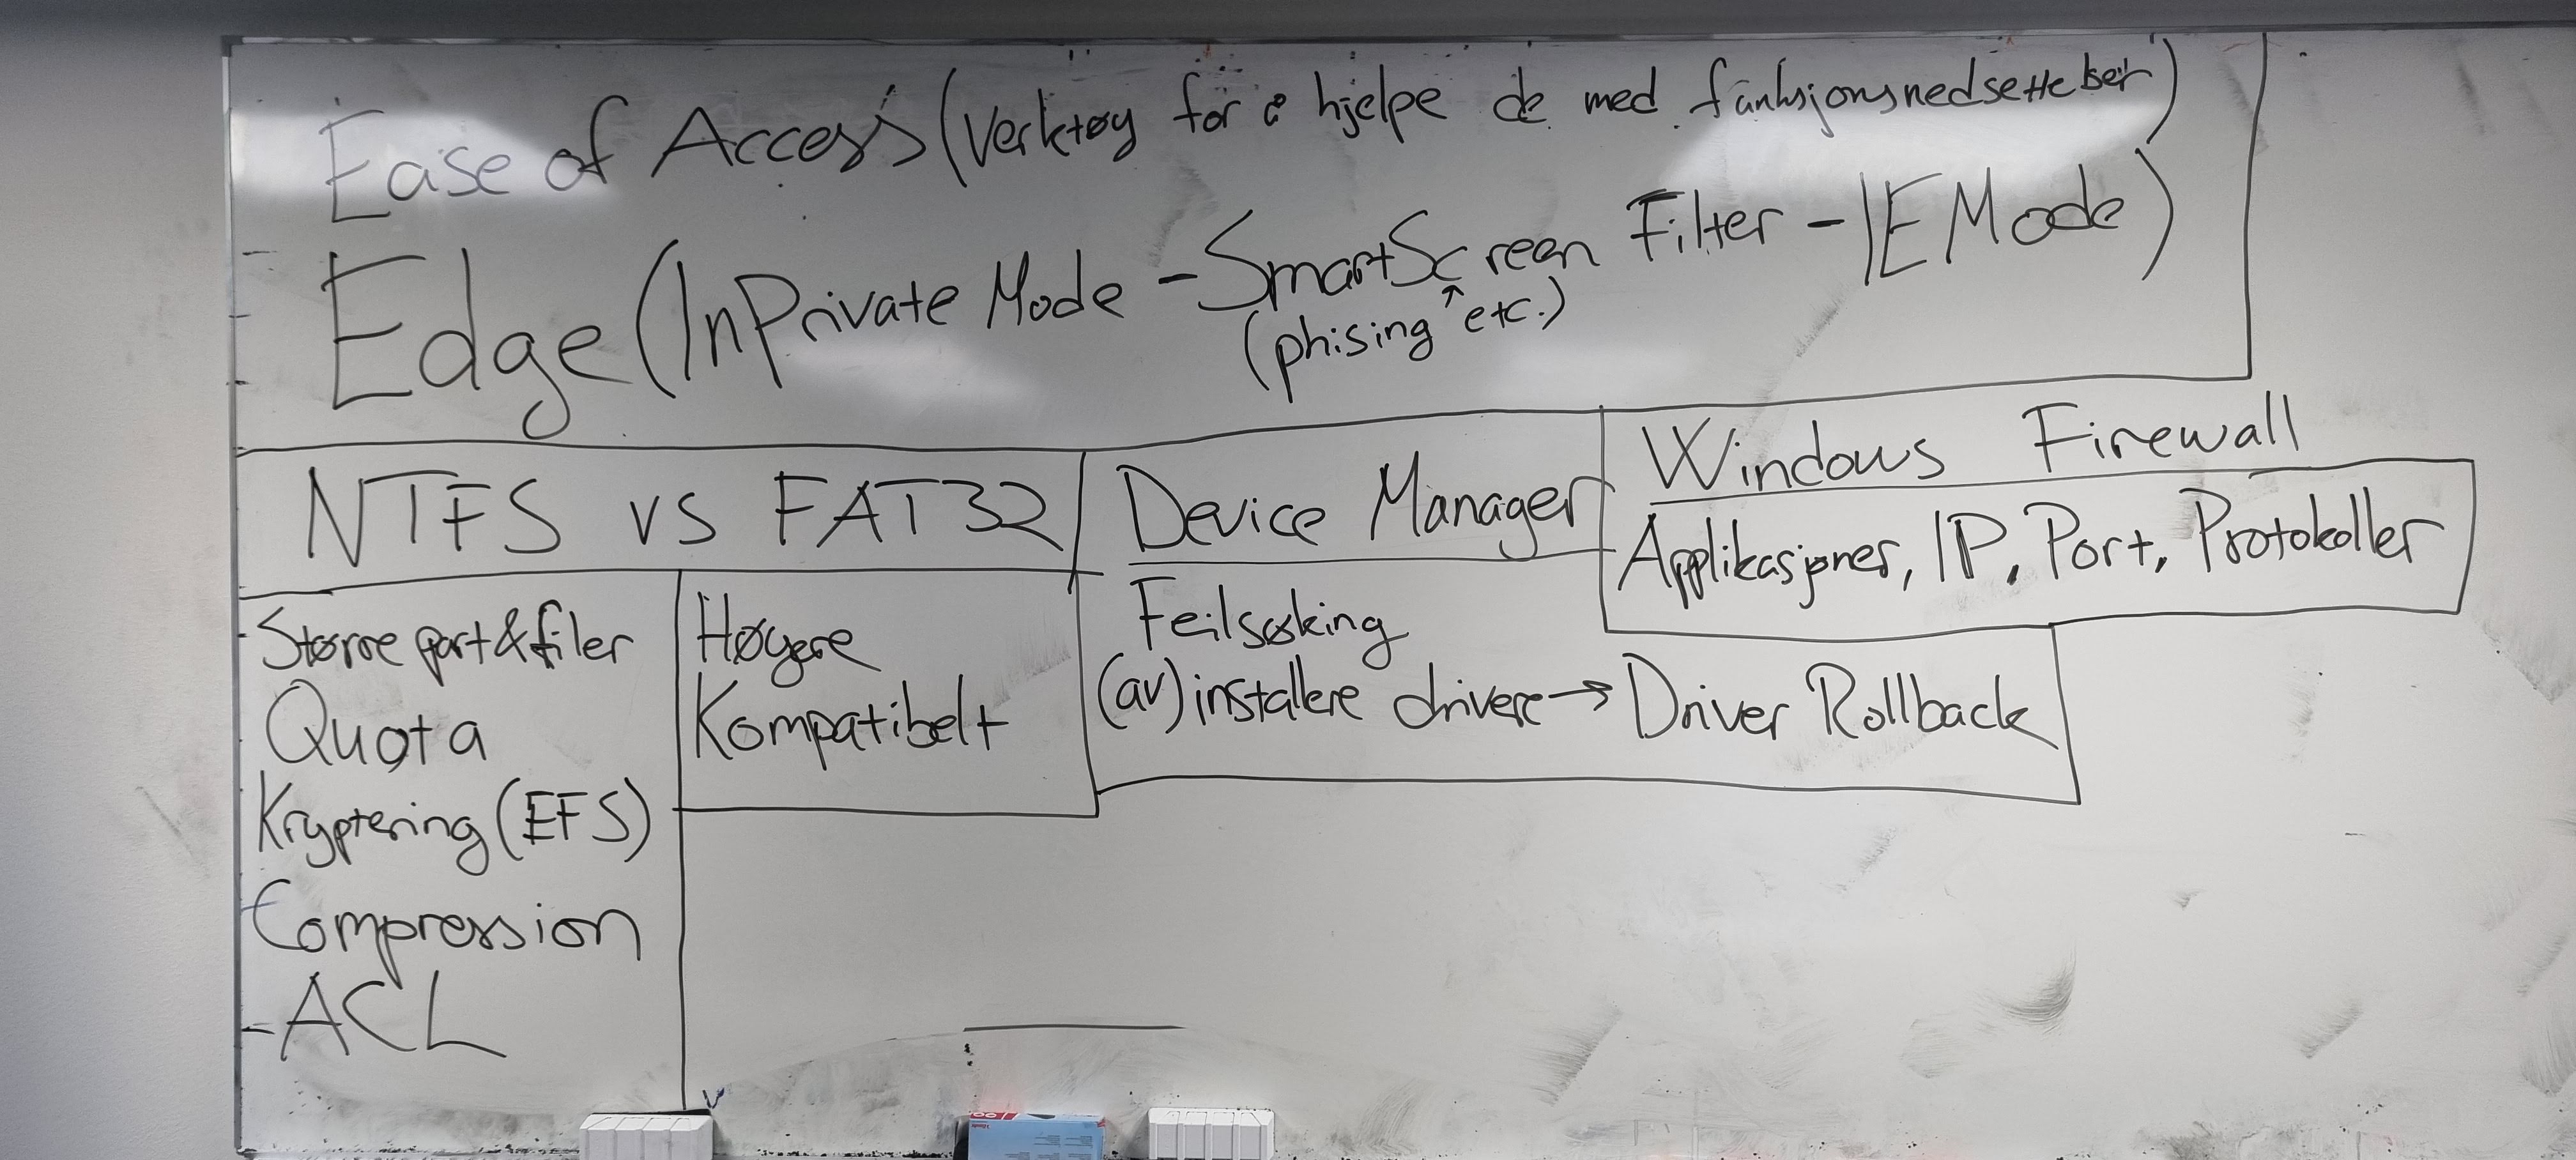 Ease of Access (Verktøy for å hjelpe de med funksjonsnedsettelser)
Edge (InPrivate Mode - SmartScreen Filter - IE Mode)
(phising etc.)
NTFS vs FAT32
Større part & filer
Quota
Kryptering (EFS)
Compression
ACL
Høyere
Kompatibelt
Device Manager
Feilsøking
(av)installere drivere → Driver Rollback
Windows Firewall
Applikasjoner, IP, Port, Protokoller